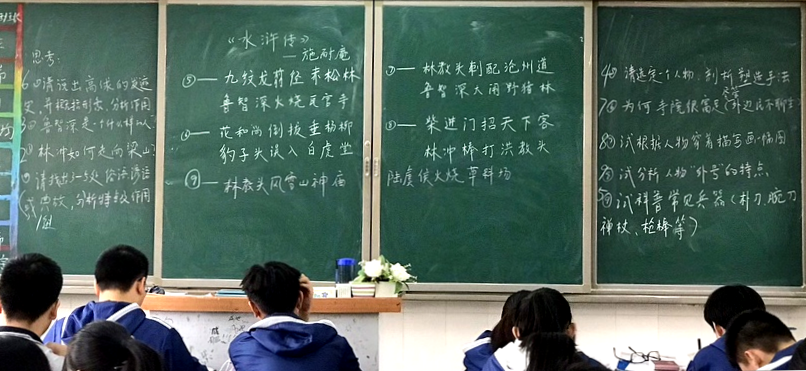 思考:
6 请说出高俅的发迹
史,并概括形象,分析作用
3 鲁智深是个什么样的人
2 林冲如何走向梁山?
请找出3-5处俗语谚语
或典故,分析特点及作用
1组
《水浒传》
——施耐庵
⑤— 九纹龙剪径赤松林
鲁智深火烧瓦官寺
— 花和尚倒拔垂杨柳
豹子头误入白虎堂
⑨— 林教头风雪山神庙
— 林教头刺配沧州道
鲁智深大闹野猪林
— 柴进门招天下客
林冲棒打洪教头
陆虞侯火烧草料场
4 请选定一个人物,剖析塑造手法
7 为何寺院很富足(外边民不聊生)
8 试根据人物穿着描写画一幅图
试分析人物"外号"的特点
5 试祥兽常见兵器(朴刀、腕刀
禅杖、枪棒等)